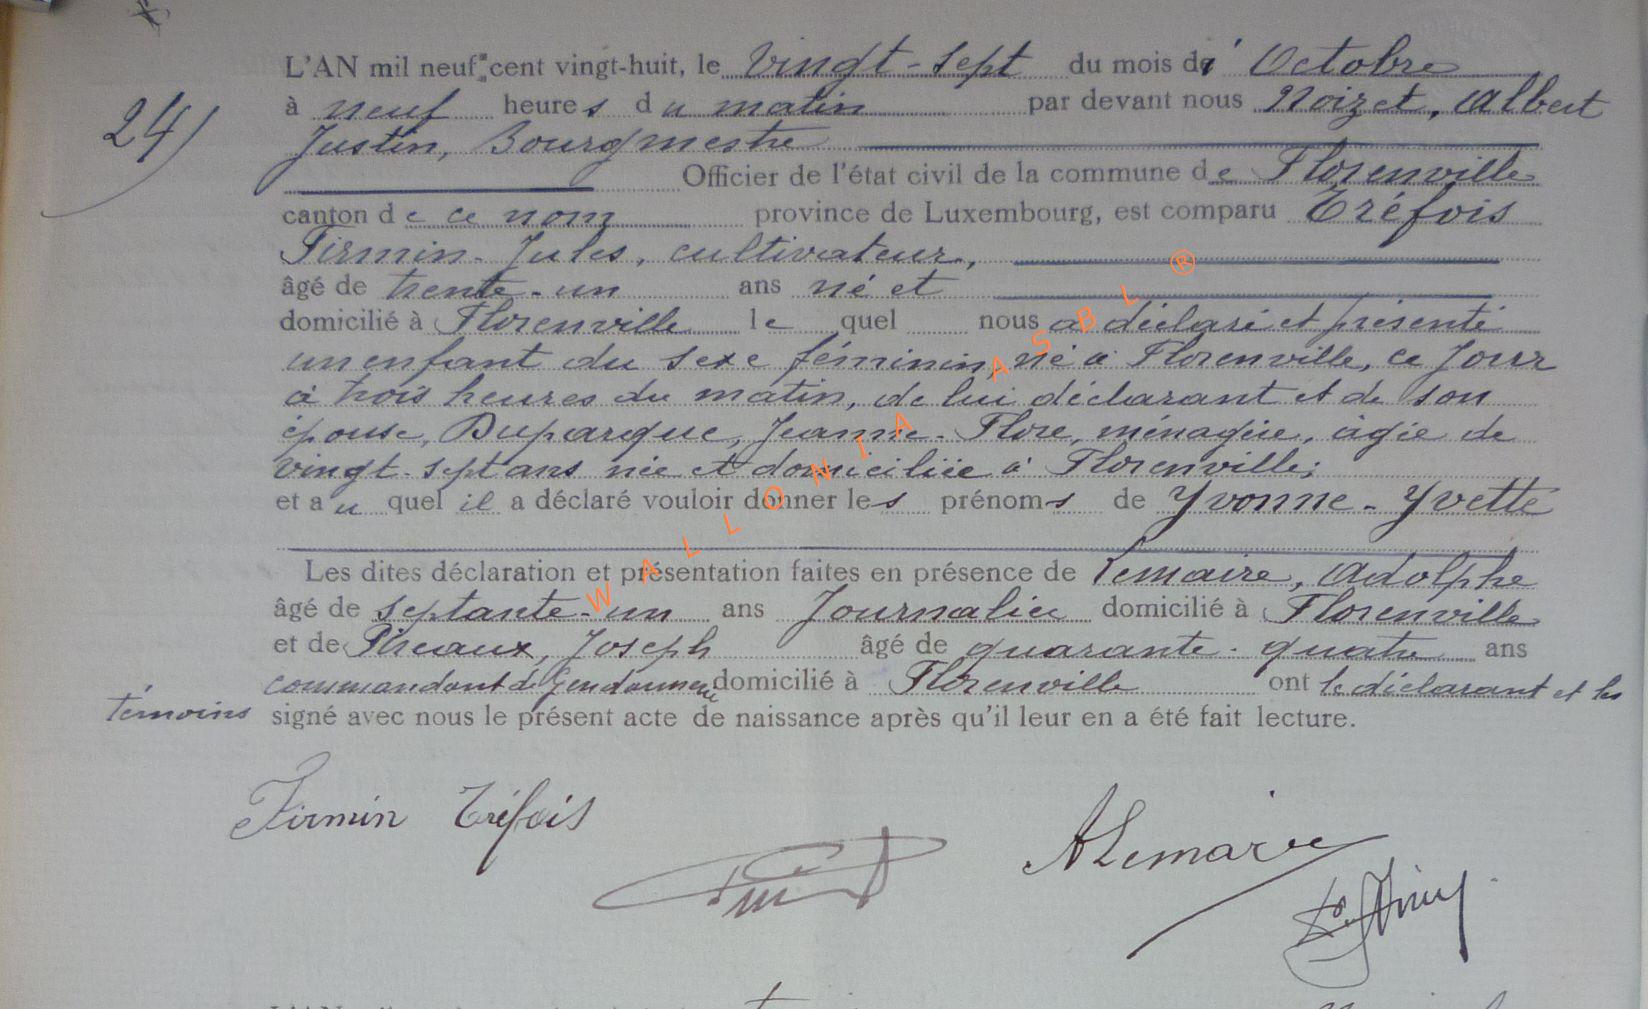 L'AN mil neuf cent vingt-huit, le vingt-sept du mois d' Octobre
24) à neuf heures du matin par devant nous Noizet, Albert
Justin, Bourgmestre
Officier de l'état civil de la commune de Florenville
canton de ce nom province de Luxembourg, est comparu Tréfois
Firmin-Jules, cultivateur,
âgé de trente-un ans né et
domicilié à Florenville lequel nous a déclaré et présenté
un enfant du sexe féminin, né à Florenville, ce jour
à trois heures du matin, de lui déclarant et de son
épouse, Duparque, Jeanne-Flore, ménagère, âgée de
vingt-sept ans née et domiciliée à Florenville;
et au quel il a déclaré vouloir donner les prénoms de Yvonne-Yvette
Les dites déclaration et présentation faites en présence de Lemaire, Adolphe
âgé de septante-un ans Journalier domicilié à Florenville
et de Pireaux, Joseph âgé de quarante-quatre ans
commandant de gendarmerie domicilié à Florenville ont le déclarant et les
témoins signé avec nous le présent acte de naissance après qu'il leur en a été fait lecture.
WALLONIA ASBL ®
Firmin Tréfois
A Lemaire